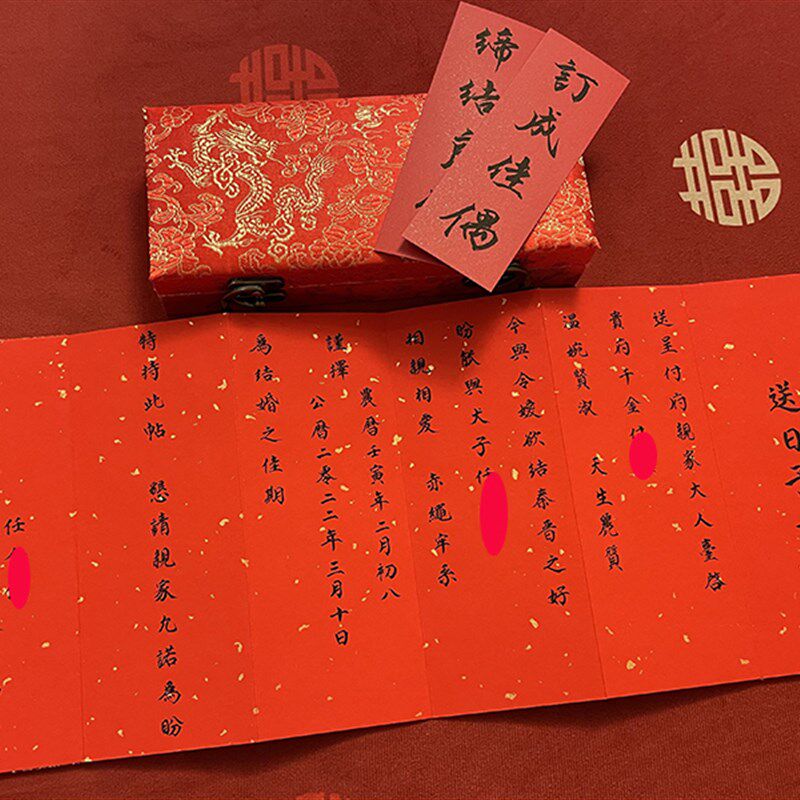 締結
訂成佳偶
送日
送呈付府親家大人臺啓
貴府千金
天生麗質
溫婉賢淑
令與令嫒欲結泰晉之好
盼欲與犬子任
赤繩牢系
相親相愛
農曆壬寅年二月初八
謹擇
公曆二零二二年三月十日
為結婚之佳期
特持此帖
懇請親家允諾為盼
任